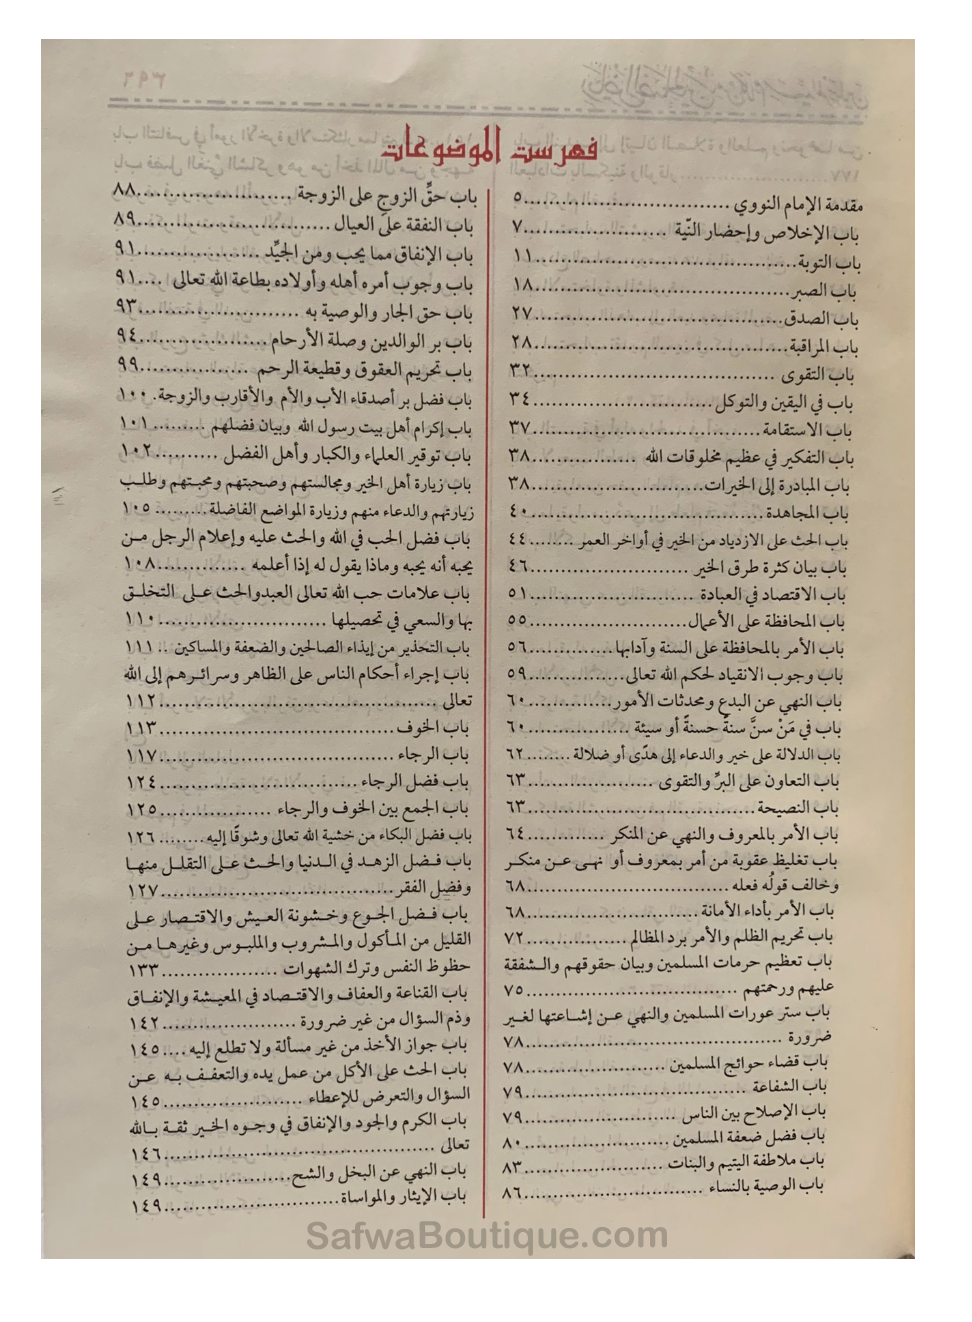 فهرست الموضوعات
مقدمة الإمام النووي ................................ ٥
باب الإخلاص وإحضار النّية ....................... ٧
باب التوبة.......................................... ١١
باب الصبر......................................... ١٨
باب الصدق........................................ ٢٧
باب المراقبة........................................ ٢٨
باب التقوى ...................................... ٣٢
باب في اليقين والتوكل............................. ٣٤
باب الاستقامة..................................... ٣٧
باب التفكير في عظيم مخلوقات الله ................. ٣٨
باب المبادرة إلى الخيرات............................ ٣٨
باب المجاهدة...................................... ٤٠
باب الحث على الازدياد من الخير في أواخر العمر ........ ٤٤
باب بيان كثرة طرق الخير .......................... ٤٦
باب الاقتصاد في العبادة ........................... ٥١
باب المحافظة على الأعمال.......................... ٥٥
باب الأمر بالمحافظة على السنة وآدابها.............. ٥٦
باب وجوب الانقياد لحكم الله تعالى................ ٥٩
باب النهي عن البدع ومحدثات الأمور.............. ٦٠
باب في مَنْ سنَّ سنةً حسنةً أو سيئة ............... ٦٠
باب الدلالة على خير والدعاء إلى هدًى أو ضلالة ........ ٦٢
باب التعاون على البرِّ والتقوى ..................... ٦٣
باب النصيحة...................................... ٦٣
باب الأمر بالمعروف والنهي عن المنكر ............. ٦٤
باب تغليظ عقوبة من أمر بمعروف أو نهى عن منكر
وخالف قولُه فعله ................................. ٦٨
باب الأمر بأداء الأمانة............................. ٦٨
باب تحريم الظلم والأمر برد المظالم ................. ٧٢
باب تعظيم حرمات المسلمين وبيان حقوقهم والشفقة
عليهم ورحمتهم .................................. ٧٥
باب ستر عورات المسلمين والنهي عن إشاعتها لغير
ضرورة .......................................... ٧٨
باب قضاء حوائج المسلمين ....................... ٧٨
باب الشفاعة .................................... ٧٩
باب الإصلاح بين الناس ......................... ٧٩
باب فضل ضعفة المسلمين ....................... ٨٠
باب ملاطفة اليتيم والبنات ....................... ٨٣
باب الوصية بالنساء ............................. ٨٦
باب حقِّ الزوج على الزوجة......................... ٨٨
باب النفقة على العيال ............................. ٨٩
باب الإنفاق مما يحب ومن الجيِّد .................... ٩١
باب وجوب أمره أهله وأولاده بطاعة الله تعالى .... ٩١
باب حق الجار والوصية به .......................... ٩٣
باب بر الوالدين وصلة الأرحام..................... ٩٤
باب تحريم العقوق وقطيعة الرحم .................. ٩٩
باب فضل بر أصدقاء الأب والأم والأقارب والزوجة. ١٠٠
باب إكرام أهل بيت رسول الله وبيان فضلهم ......... ١٠١
باب توقير العلماء والكبار وأهل الفضل .......... ١٠٢
باب زيارة أهل الخير ومجالستهم وصحبتهم ومحبتهم وطلب
زيارتهم والدعاء منهم وزيارة المواضع الفاضلة......... ١٠٥
باب فضل الحب في الله والحث عليه وإعلام الرجل من
يحبه أنه يحبه وماذا يقول له إذا أعلمه .............. ١٠٨
باب علامات حب الله تعالى العبدوالحث على التخلق
بها والسعي في تحصيلها ........................... ١١٠
باب التحذير من إيذاء الصالحين والضعفة والمساكين .. ١١١
باب إجراء أحكام الناس على الظاهر وسرائرهم إلى الله
تعالى ............................................ ١١٢
باب الخوف...................................... ١١٣
باب الرجاء ...................................... ١١٧
باب فضل الرجاء ................................ ١٢٤
باب الجمع بين الخوف والرجاء .................. ١٢٥
باب فضل البكاء من خشية الله تعالى وشوقًا إليه........ ١٢٦
باب فضل الزهد في الدنيا والحث على التقلل منها
وفضل الفقر...................................... ١٢٧
باب فضل الجوع وخشونة العيش والاقتصار على
القليل من المأكول والمشروب والملبوس وغيرها من
حظوظ النفس وترك الشهوات ................... ١٣٣
باب القناعة والعفاف والاقتصاد في المعيشة والإنفاق
وذم السؤال من غير ضرورة ..................... ١٤٢
باب جواز الأخذ من غير مسألة ولا تطلع إليه.... ١٤٥
باب الحث على الأكل من عمل يده والتعفف به عن
السؤال والتعرض للإعطاء ....................... ١٤٥
باب الكرم والجود والإنفاق في وجوه الخير ثقة بالله
تعالى ............................................ ١٤٦
باب النهي عن البخل والشح..................... ١٤٩
باب الإيثار والمواساة............................. ١٤٩
SafwaBoutique.com